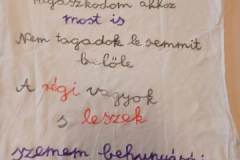 ragaszkodom ahhoz
most is
Nem tagadok le semmit
belőle
A régi vagyok
s leszek
szemem behunyásá